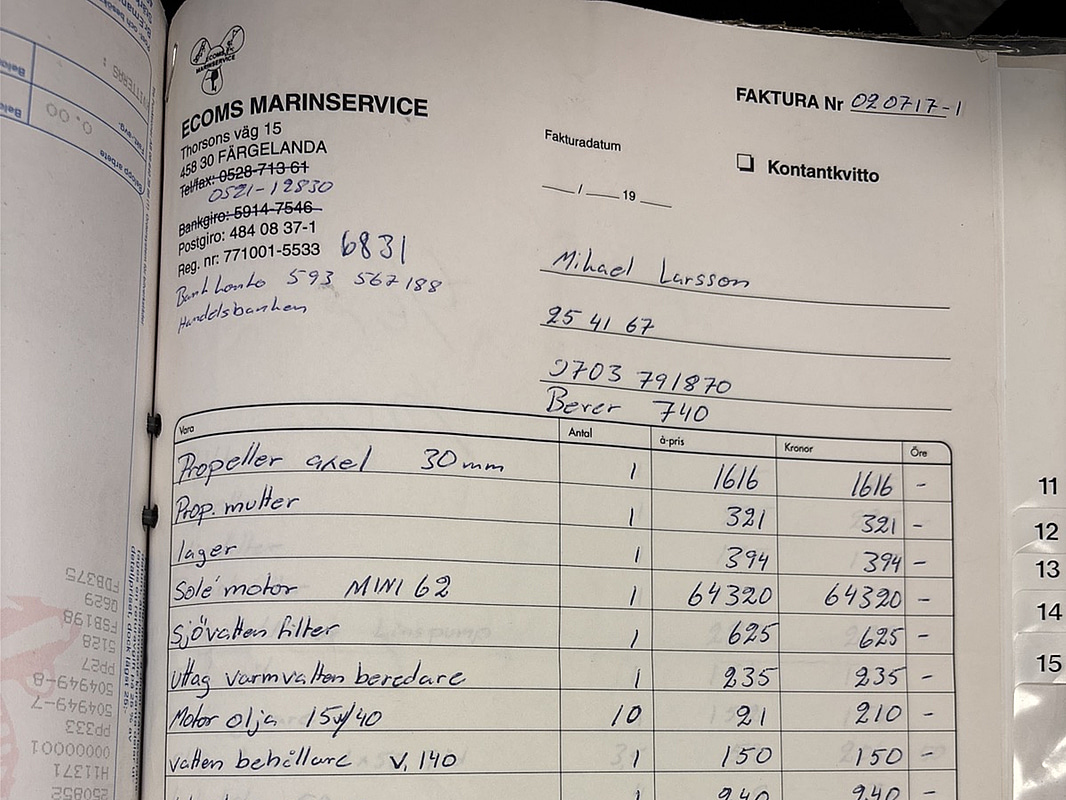 ECOMS
MARINSERVICE
ECOMS MARINSERVICE
Thorsons väg 15
458 30 FÄRGELANDA
Tel/fax: 0528-713 61
0521-12830
Bankgiro: 5914-7546
Postgiro: 484 08 37-1
Reg. nr: 771001-5533 6831
Bankkonto 593 567 188
Handelsbanken
FAKTURA Nr 020717-1
Fakturadatum
Kontantkvitto
__/__ 19 __
Mikael Larsson
25 41 67
0703 791870
Berer 740
Vara Antal à-pris Kronor Öre
Propeller axel 30mm 1 1616 1616 -
Prop. mutter 1 321 321 -
lager 1 394 394 -
Solé motor MINI 62 1 64320 64320 -
Sjövatten filter 1 625 625 -
Uttag varmvatten beredare 1 235 235 -
Motor olja 15w/40 10 21 210 -
vatten behållare V. 140 1 150 150 -
1 940 940 -
11
12
13
14
15
0.00
FDB375
Q629
FSB198
5128
PP27
504949-8
504949-7
PP333
00000001
H11371
250852